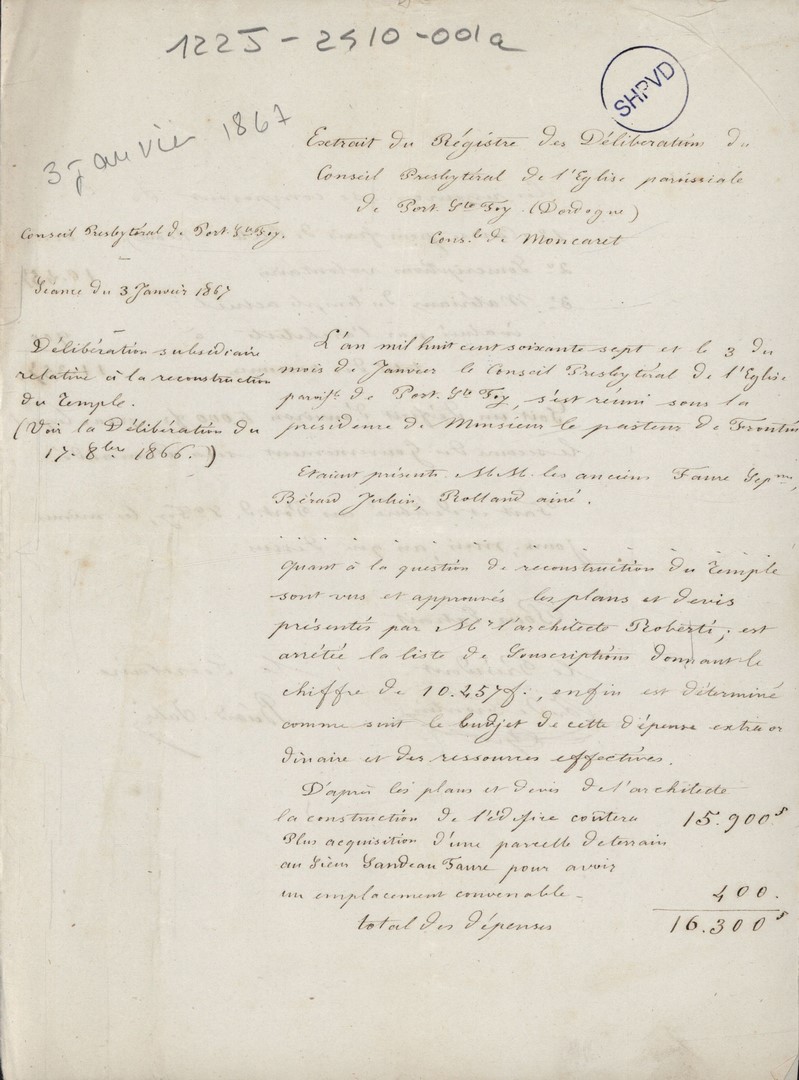 1225-2510-001a
SHPVD
3 janvier 1867
Extrait du Régistre des Délibération du
Conseil Presbytéral de l'Eglise paroissiale
de Port Ste Foy (Dordogne)
Consle de Moncaret
Conseil Presbytéral de Port Ste Foy.
Séance du 3 Janvier 1867
Délibération subsidiaire
relative à la reconstruction
du Temple.
(Voir la Délibération du
17. 8bre 1866.)
L'an mil huit cent soixante sept et le 3 du
mois de Janvier le Conseil Presbytéral de l'Eglise
paroisle de Port Ste Foy, s'est réuni sous la
présidence de Monsieur le pasteur de Frontin
Etaient présents MM. les anciens Faure
Bérard Julien, Rolland ainé.
Quant à la question de reconstruction du Temple
sont vus et approuvés les plans et devis
présentés par Mr l'architecte Roberti; est
arrêtée la liste de Souscriptions donnant le
chiffre de 10.257f., enfin est déterminé
comme suit le budjet de cette dépense extraor
dinaire et des ressources effectives.
D'après les plans et devis de l'architecte
la construction de l'édifice coûtera 15.900f
Plus acquisition d'une parcelle de terrain
au Sieur Sandeau Faure pour avoir
un emplacement convenable - 400.
total des dépenses 16.300f